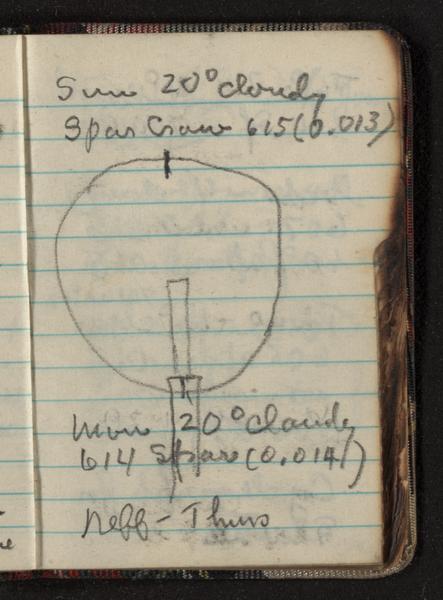 Sun 20° cloudy
Spar Craw 615 (0.013)
Mon 20° cloudy
614 Spar (0.014)
Neff - Thurs